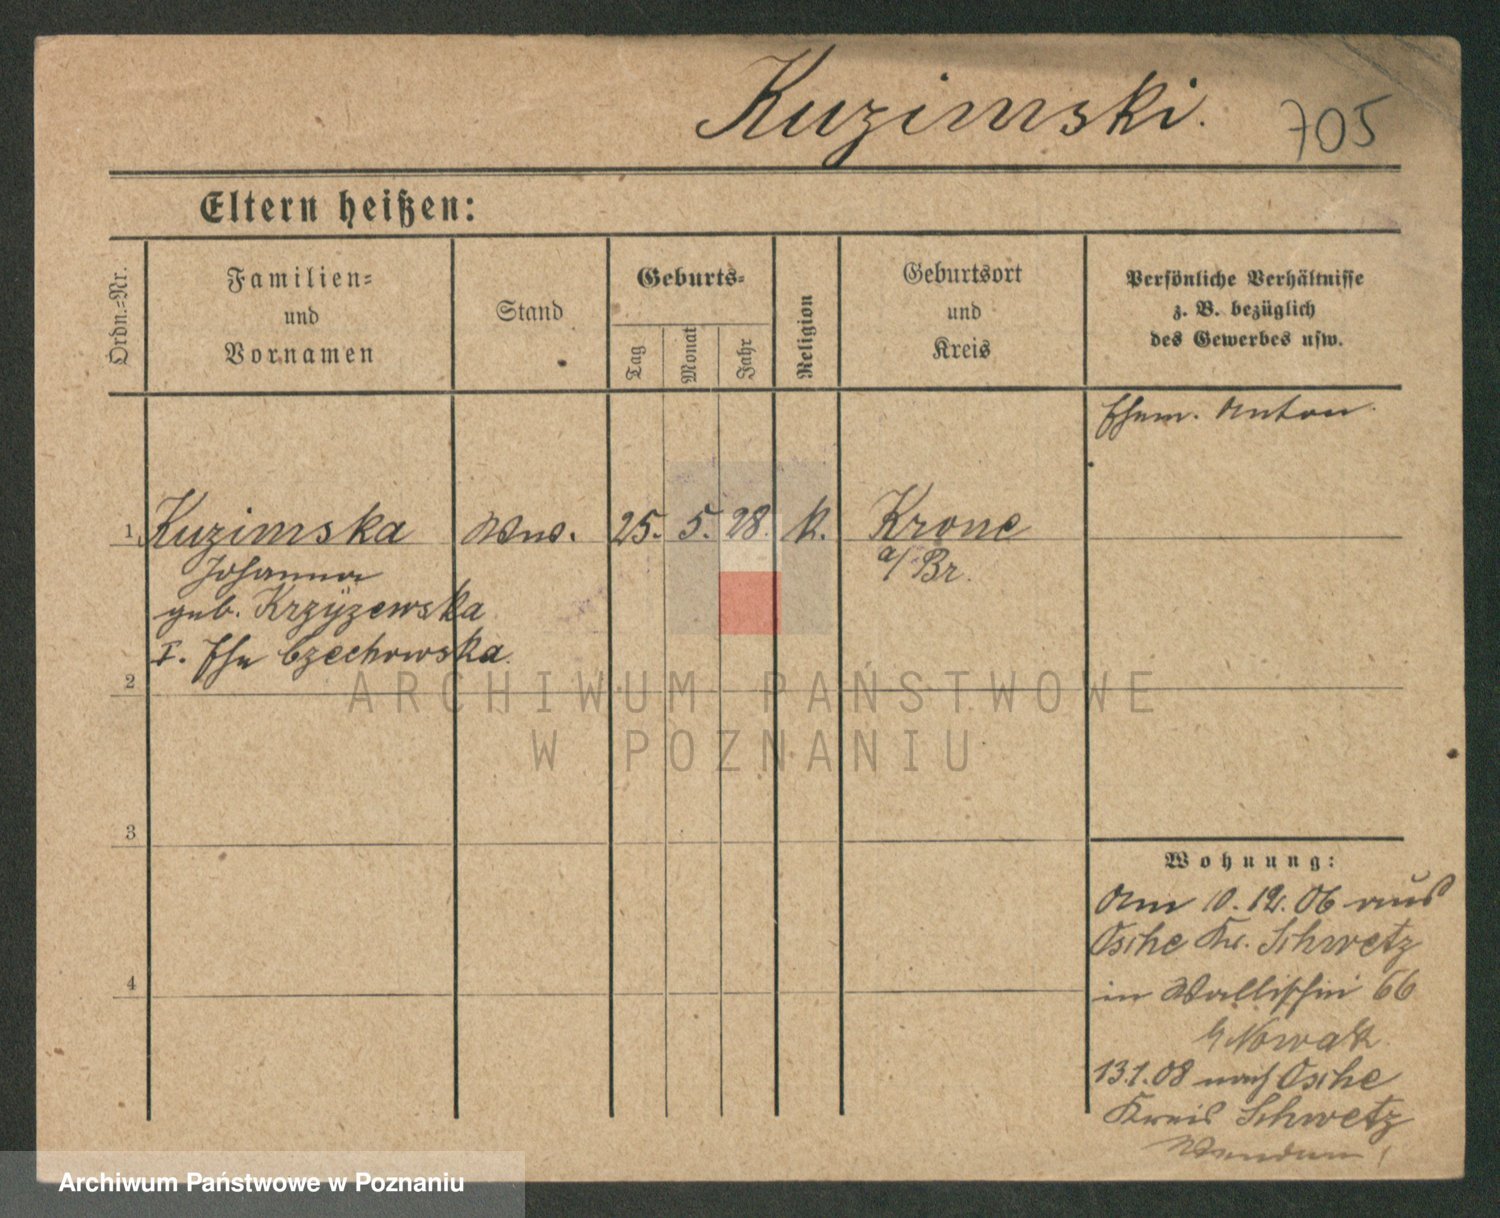 Kuzimski. 705
Eltern heißen:
Ordn.-Nr.
Familien-
und
Vornamen
Stand
Geburts-
Tag
Monat
Jahr
Religion
Geburtsort
und
Kreis
Persönliche Verhältnisse
z. B. bezüglich
des Gewerbes usw.
Ehem. Anton.
1 Kuzimska Wwe. 25. 5. 28. k. Krone
Johanna a/Br.
geb. Krzyzewska
I. Ehe Czechowska.
2
ARCHIWUM PAŃSTWOWE
W POZNANIU
3
Wohnung:
Am 10.12.06 aus
Osche Kr. Schwetz
4
in Wallischei 66
Nowak
13.1.08 nach Osche
Kreis Schwetz
Archiwum Państwowe w Poznaniu